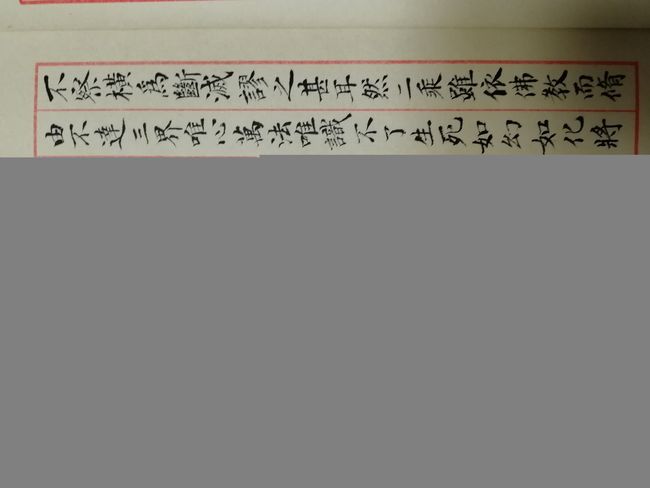 不察橫為斷滅謬之甚耳然二乘雖依佛教而脩
由不達三界唯心萬法唯識不了生死如幻如化將